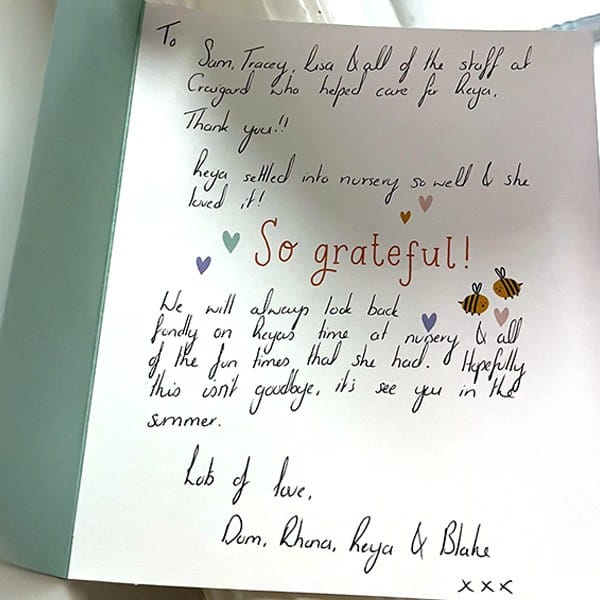 To
Sam, Tracey, Lisa & all of the staff at
Craigard who helped care for Keya.
Thank you!!
Keya settled into nursery so well & she
loved it!
So grateful!
We will always look back
fondly on Keya's time at nursery & all
of the fun times that she had. Hopefully
this isn't goodbye, it's see you in the
summer.
Lots of love,
Dom, Rhona, Keya & Blake
xxx